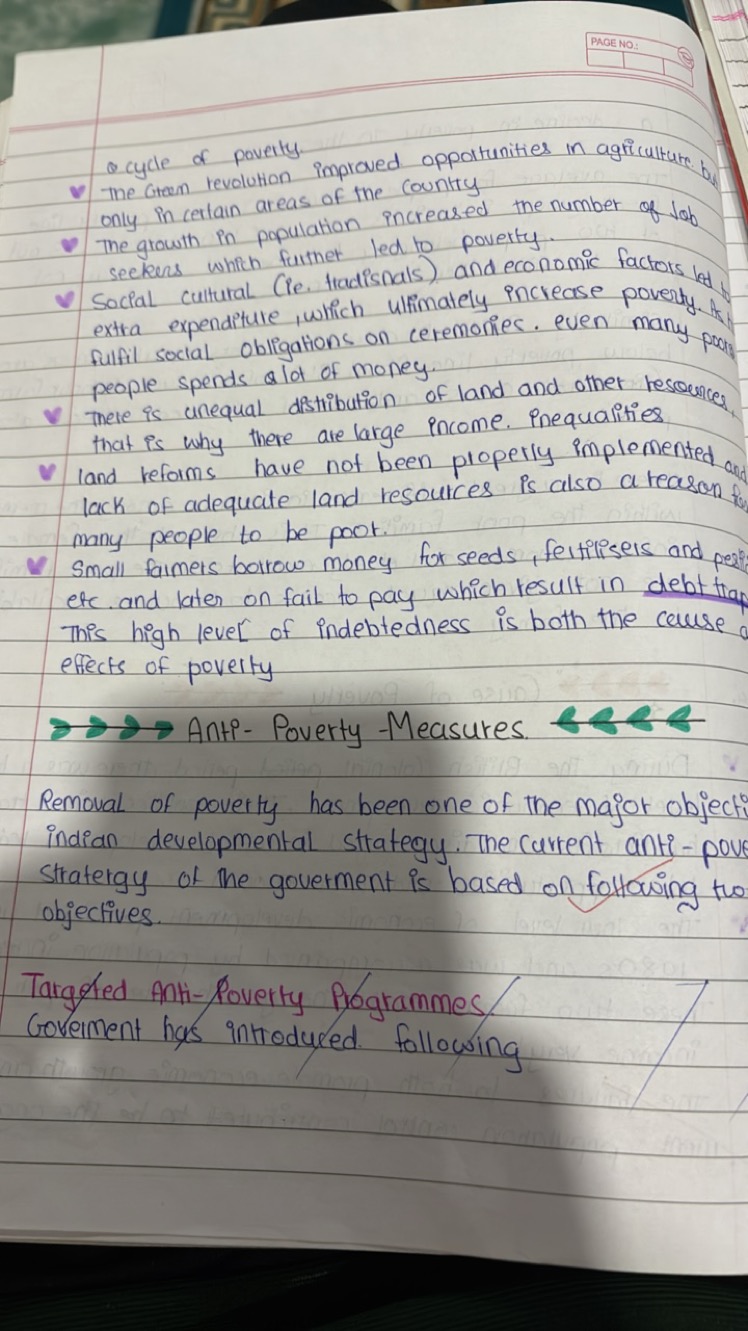 PAGE NO.:
a cycle of poverty.
The Green revolution improved opportunities in agriculture bu
only in certain areas of the country
The growth in population increased the number of Job
seekers which further led to poverty.
Social cultural (ie. tradisnals) and economic factors led to
extra expenditure, which ultimately increase poverty. As
fulfil social obligations on ceremonies. even many poor
people spends a lot of money.
There is unequal distribution of land and other resources,
that is why there are large income. inequalities
land reforms have not been properly implemented and
lack of adequate land resources is also a reason for
many people to be poor.
Small farmers borrow money for seeds, fertilisers and pesti
etc. and later on fail to pay which result in debt trap
This high level of indebtedness is both the cause a
effects of poverty
Anti- Poverty -Measures.
Removal of poverty has been one of the major objecti
indian developmental strategy. The current anti - pove
stratergy of the goverment is based on following two
objectives.
Targeted Anti-Poverty Programmes
Goverment has introduced following